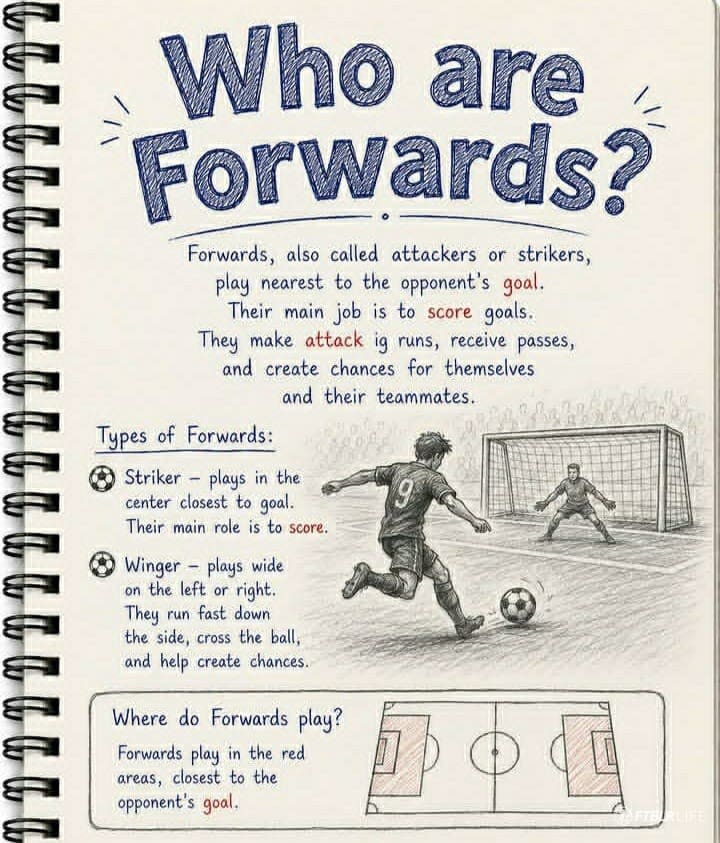 Who are
Forwards?
Forwards, also called attackers or strikers,
play nearest to the opponent's goal.
Their main job is to score goals.
They make attack ig runs, receive passes,
and create chances for themselves
and their teammates.
Types of Forwards:
Striker – plays in the
center closest to goal.
Their main role is to score.
Winger – plays wide
on the left or right.
They run fast down
the side, cross the ball,
and help create chances.
9
Where do Forwards play?
Forwards play in the red
areas, closest to the
opponent's goal.